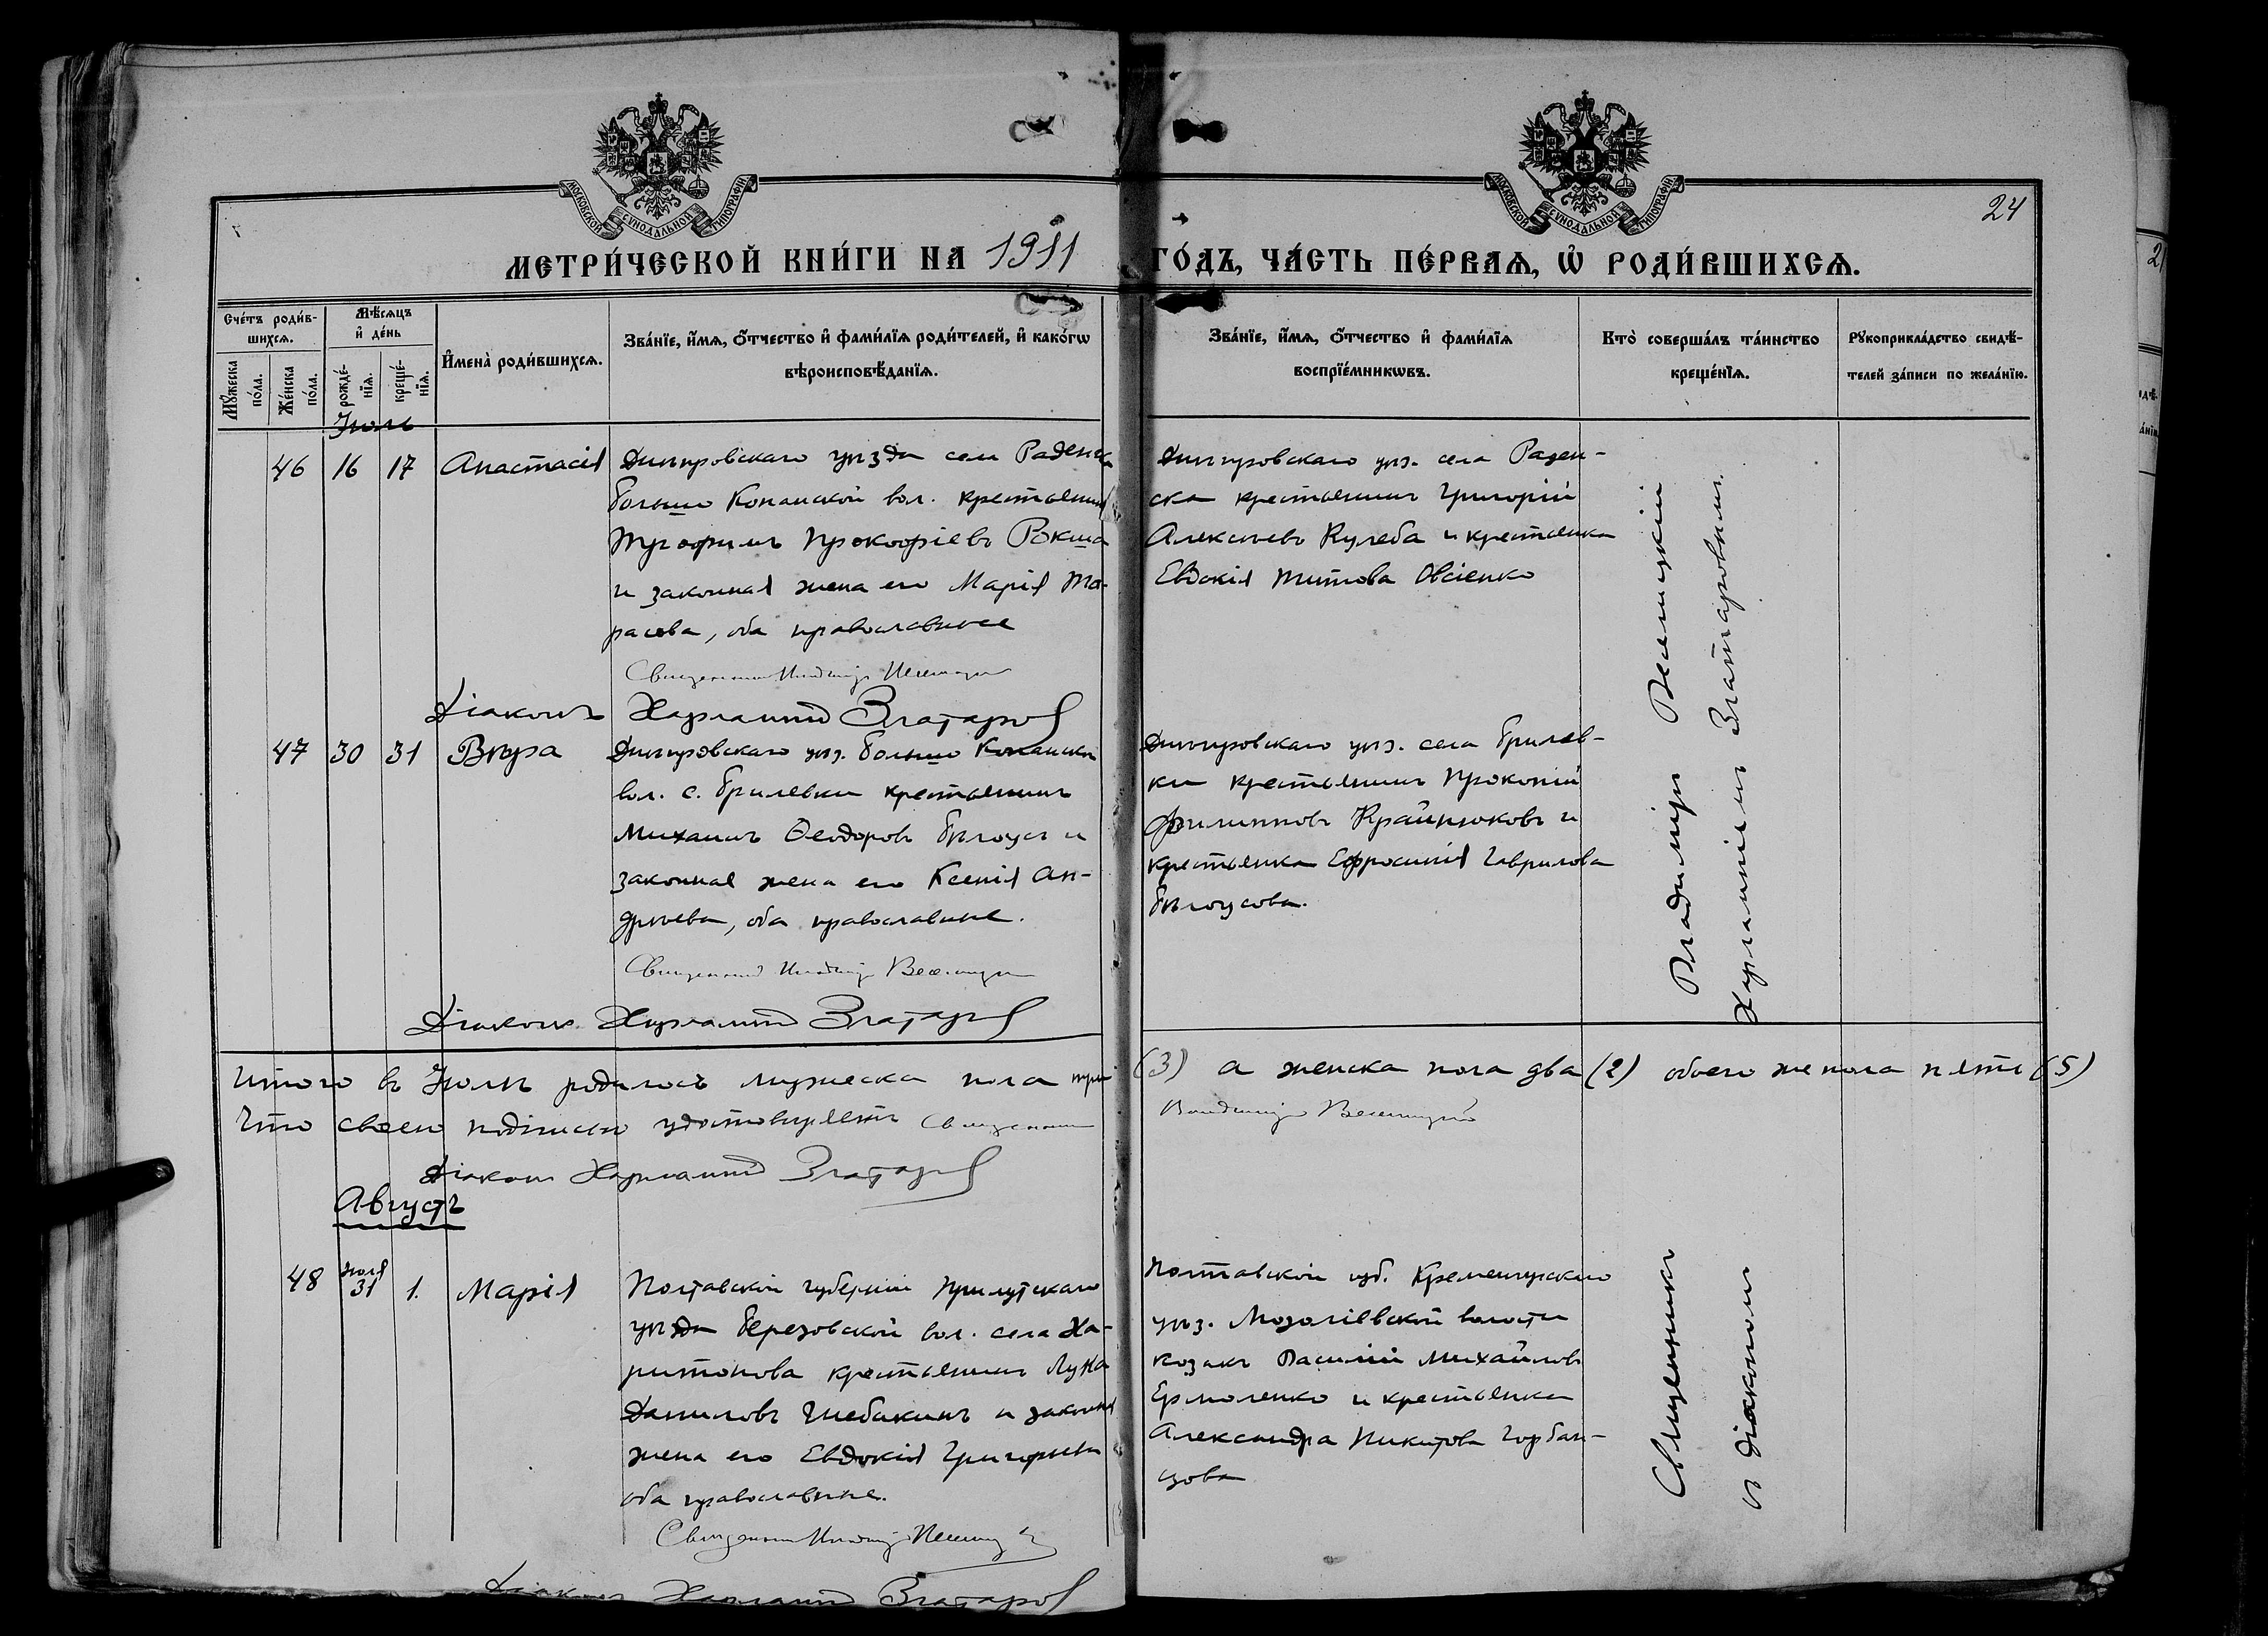 МОСКОВСКОЙ СѴНОДАЛЬНОЙ ТИПОГРАФІИ
МОСКОВСКОЙ СѴНОДАЛЬНОЙ ТИПОГРАФІИ
24
МЕТРИ́ЧЕСКОЙ КНИ́ГИ НА 1911 ГО́ДЪ, ЧА́СТЬ ПЕ́РВАѦ, Ѡ҆ РОДИ́ВШИХСѦ.
Сче́тъ роди́в-
шихсѧ.
Мꙋ́жеска по́ла.
Же́нска по́ла.
Мѣ́сѧцъ
и҆ де́нь
рожде́-
нїѧ.
креще́-
нїѧ.
И҆мена̀ роди́вшихсѧ.
Зва́нїе, и҆́мѧ, ѻ҆́тчество и҆ фами́лїѧ роди́телей, и҆ како́гѡ
вѣроисповѣ́данїѧ.
Зва́нїе, и҆́мѧ, ѻ҆́тчество и҆ фами́лїѧ
воспрїе́мникѡвъ.
Кто̀ соверша́лъ та́инство
креще́нїѧ.
Рꙋкоприкла́дство свидѣ́-
телей за́писи по жела́нїю.
Іюль
46 16 17 Анастасія
Днѣпровскаго уѣзда села Раденска
Больше Копанской вол. крестьянинъ
Трофимъ Прокофіевъ Рокша
и законная жена его Марія Та-
расова, оба православные
Священникъ Владиміръ
Діаконъ Харлампій Златаровъ
Днѣпровскаго уѣз. села Раден-
ска крестьянинъ Григорій
Алексѣевъ Кулеба и крестьянка
Евдокія Титова Овсіенко
47 30 31 Вѣра
Днѣпровскаго уѣз. Больше Копанской
вол. с. Брилевки крестьянинъ
Михаилъ Ѳеодоровъ Бѣлоусъ и
законная жена его Ксенія Ан-
дреева, оба православные.
Священникъ Владиміръ
Діаконъ Харлампій Златаровъ
Днѣпровскаго уѣз. села Брилев-
ки крестьянинъ Прокопій
Филипповъ Крайнюковъ и
крестьянка Ефросинія Гаврилова
Бѣлоусова.
Владиміръ
Харлампіемъ Златаровымъ.
Итого въ Іюлѣ родилось мужеска пола три (3) а женска пола два (2) обоего же пола пять (5)
Что своею подписью удостовѣряетъ Священникъ Владиміръ
Діаконъ Харлампій Златаровъ
Августъ
48 Іюля 31 1. Марія
Полтавской губерніи Прилутскаго
уѣзда Березовской вол. села Ха-
ритонова крестьянинъ Лука
Даниловъ Шебакинъ и законная
жена его Евдокія Григорьева
оба православные.
Священникъ Владиміръ
Діаконъ Харлампій Златаровъ
Полтавской губ. Кременчугскаго
уѣз. волости
козакъ Василій Михайловъ
Ермоленко и крестьянка
Александра Никитова Горбан-
цова
Священникъ
и діакономъ